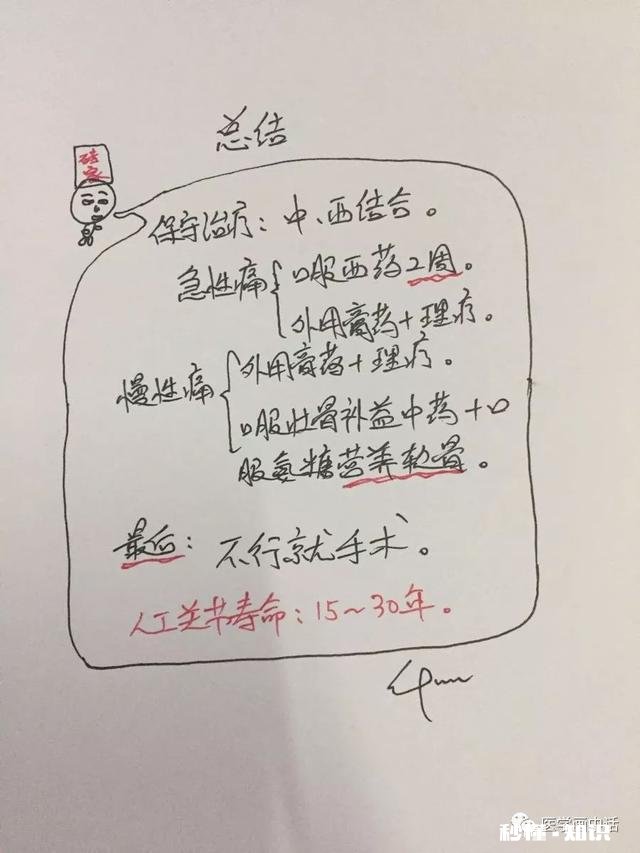 总结
砖家
保守治疗：中、西结合。
急性痛
口服西药2周。
外用膏药+理疗。
慢性痛
外用膏药+理疗。
口服壮骨补益中药+口
服氨糖营养软骨。
最后：不行就手术。
人工关节寿命：15~30年。
医学画中话
秒懂·知识